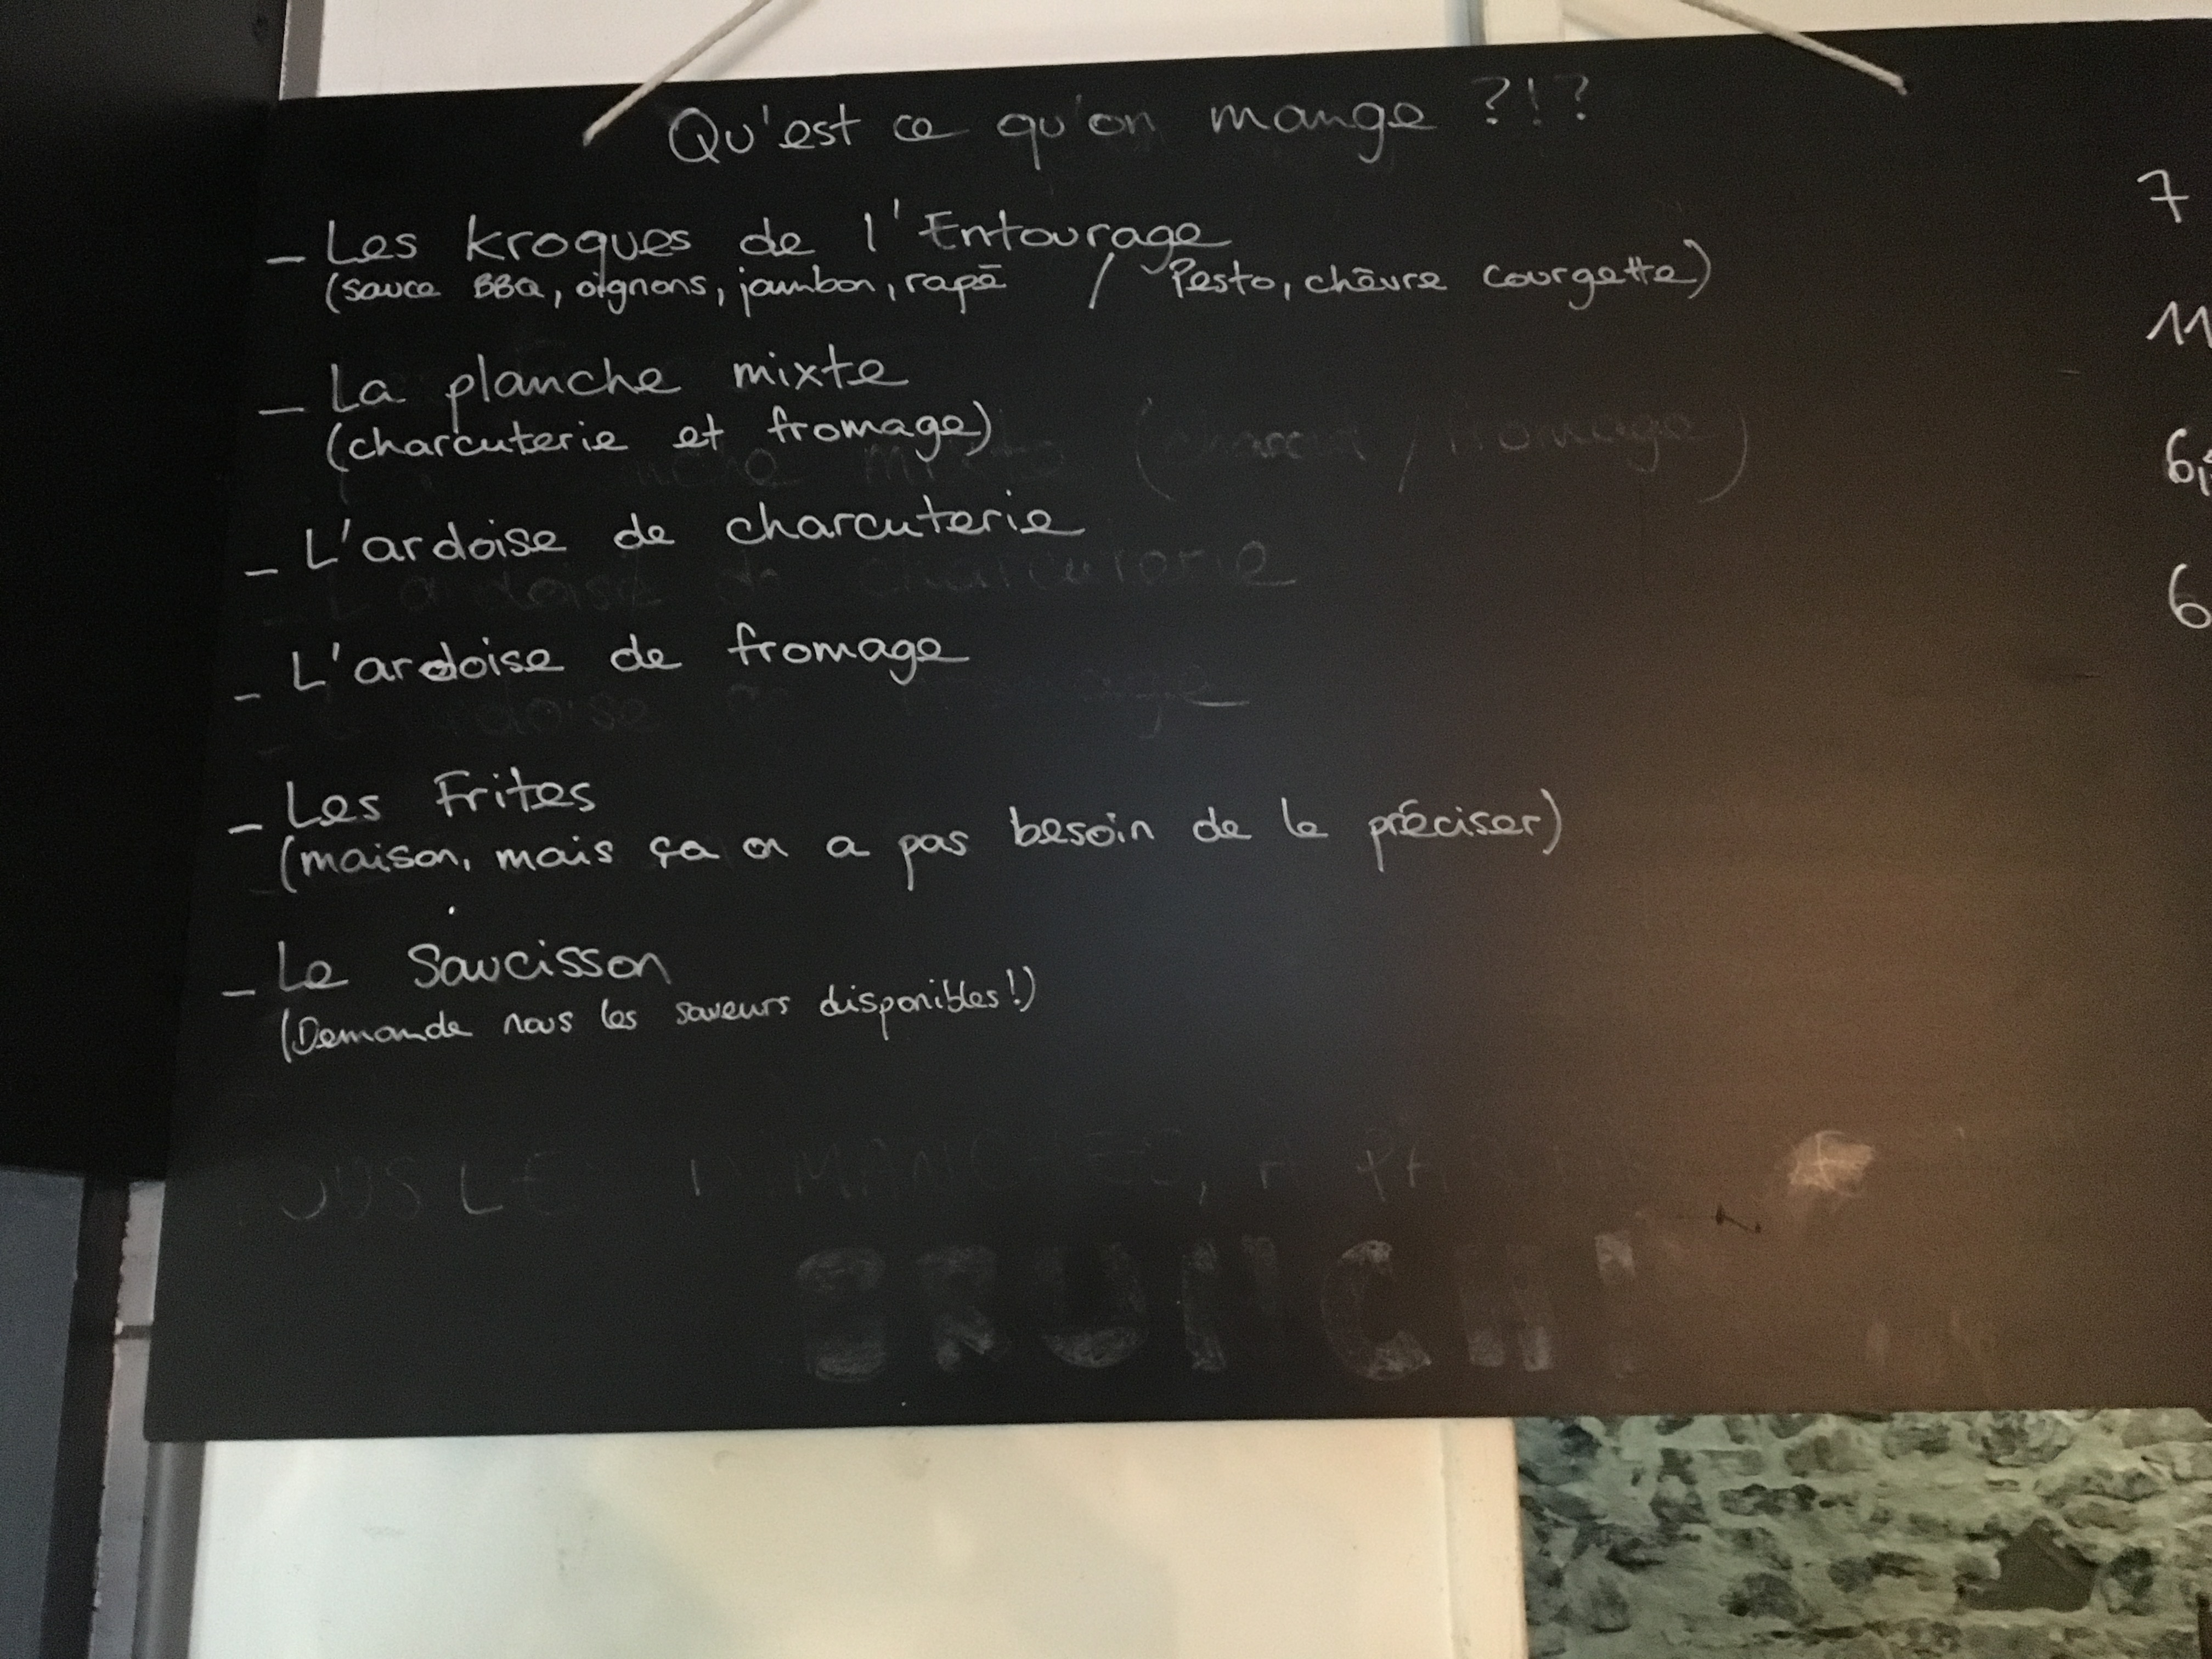 Qu'est ce qu'on mange ?!?
- Les kroques de l'Entourage 7
(sauce BBQ, oignons, jambon, rapé / Pesto, chèvre courgette)
- La planche mixte 11
(charcuterie et fromage)
- L'ardoise de charcuterie 6,
- L'ardoise de fromage 6
- Les Frites
(maison, mais ça on a pas besoin de le préciser)
- Le Saucisson
(Demande nous les saveurs disponibles!)
BRUNCH